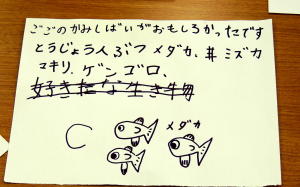 ごごのかみしばいがおもしろかったです
とうじょう人ぶつメダカ、井ミズカ
マキリ、ゲンゴロ、
好きたな生き物
メダカ